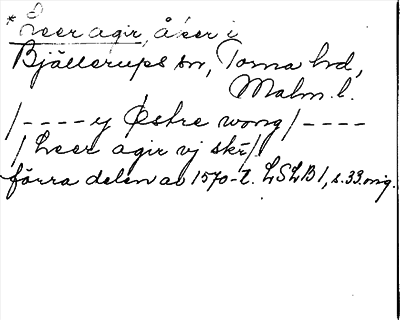 * Leer agir, åker i
Bjällerups sn, Torna hd,
Malm. l.
/---- y Østre wong/----
/ Leer agir vj skr/
förra delen av 1570-t. LSLB 1, s. 33. orig.